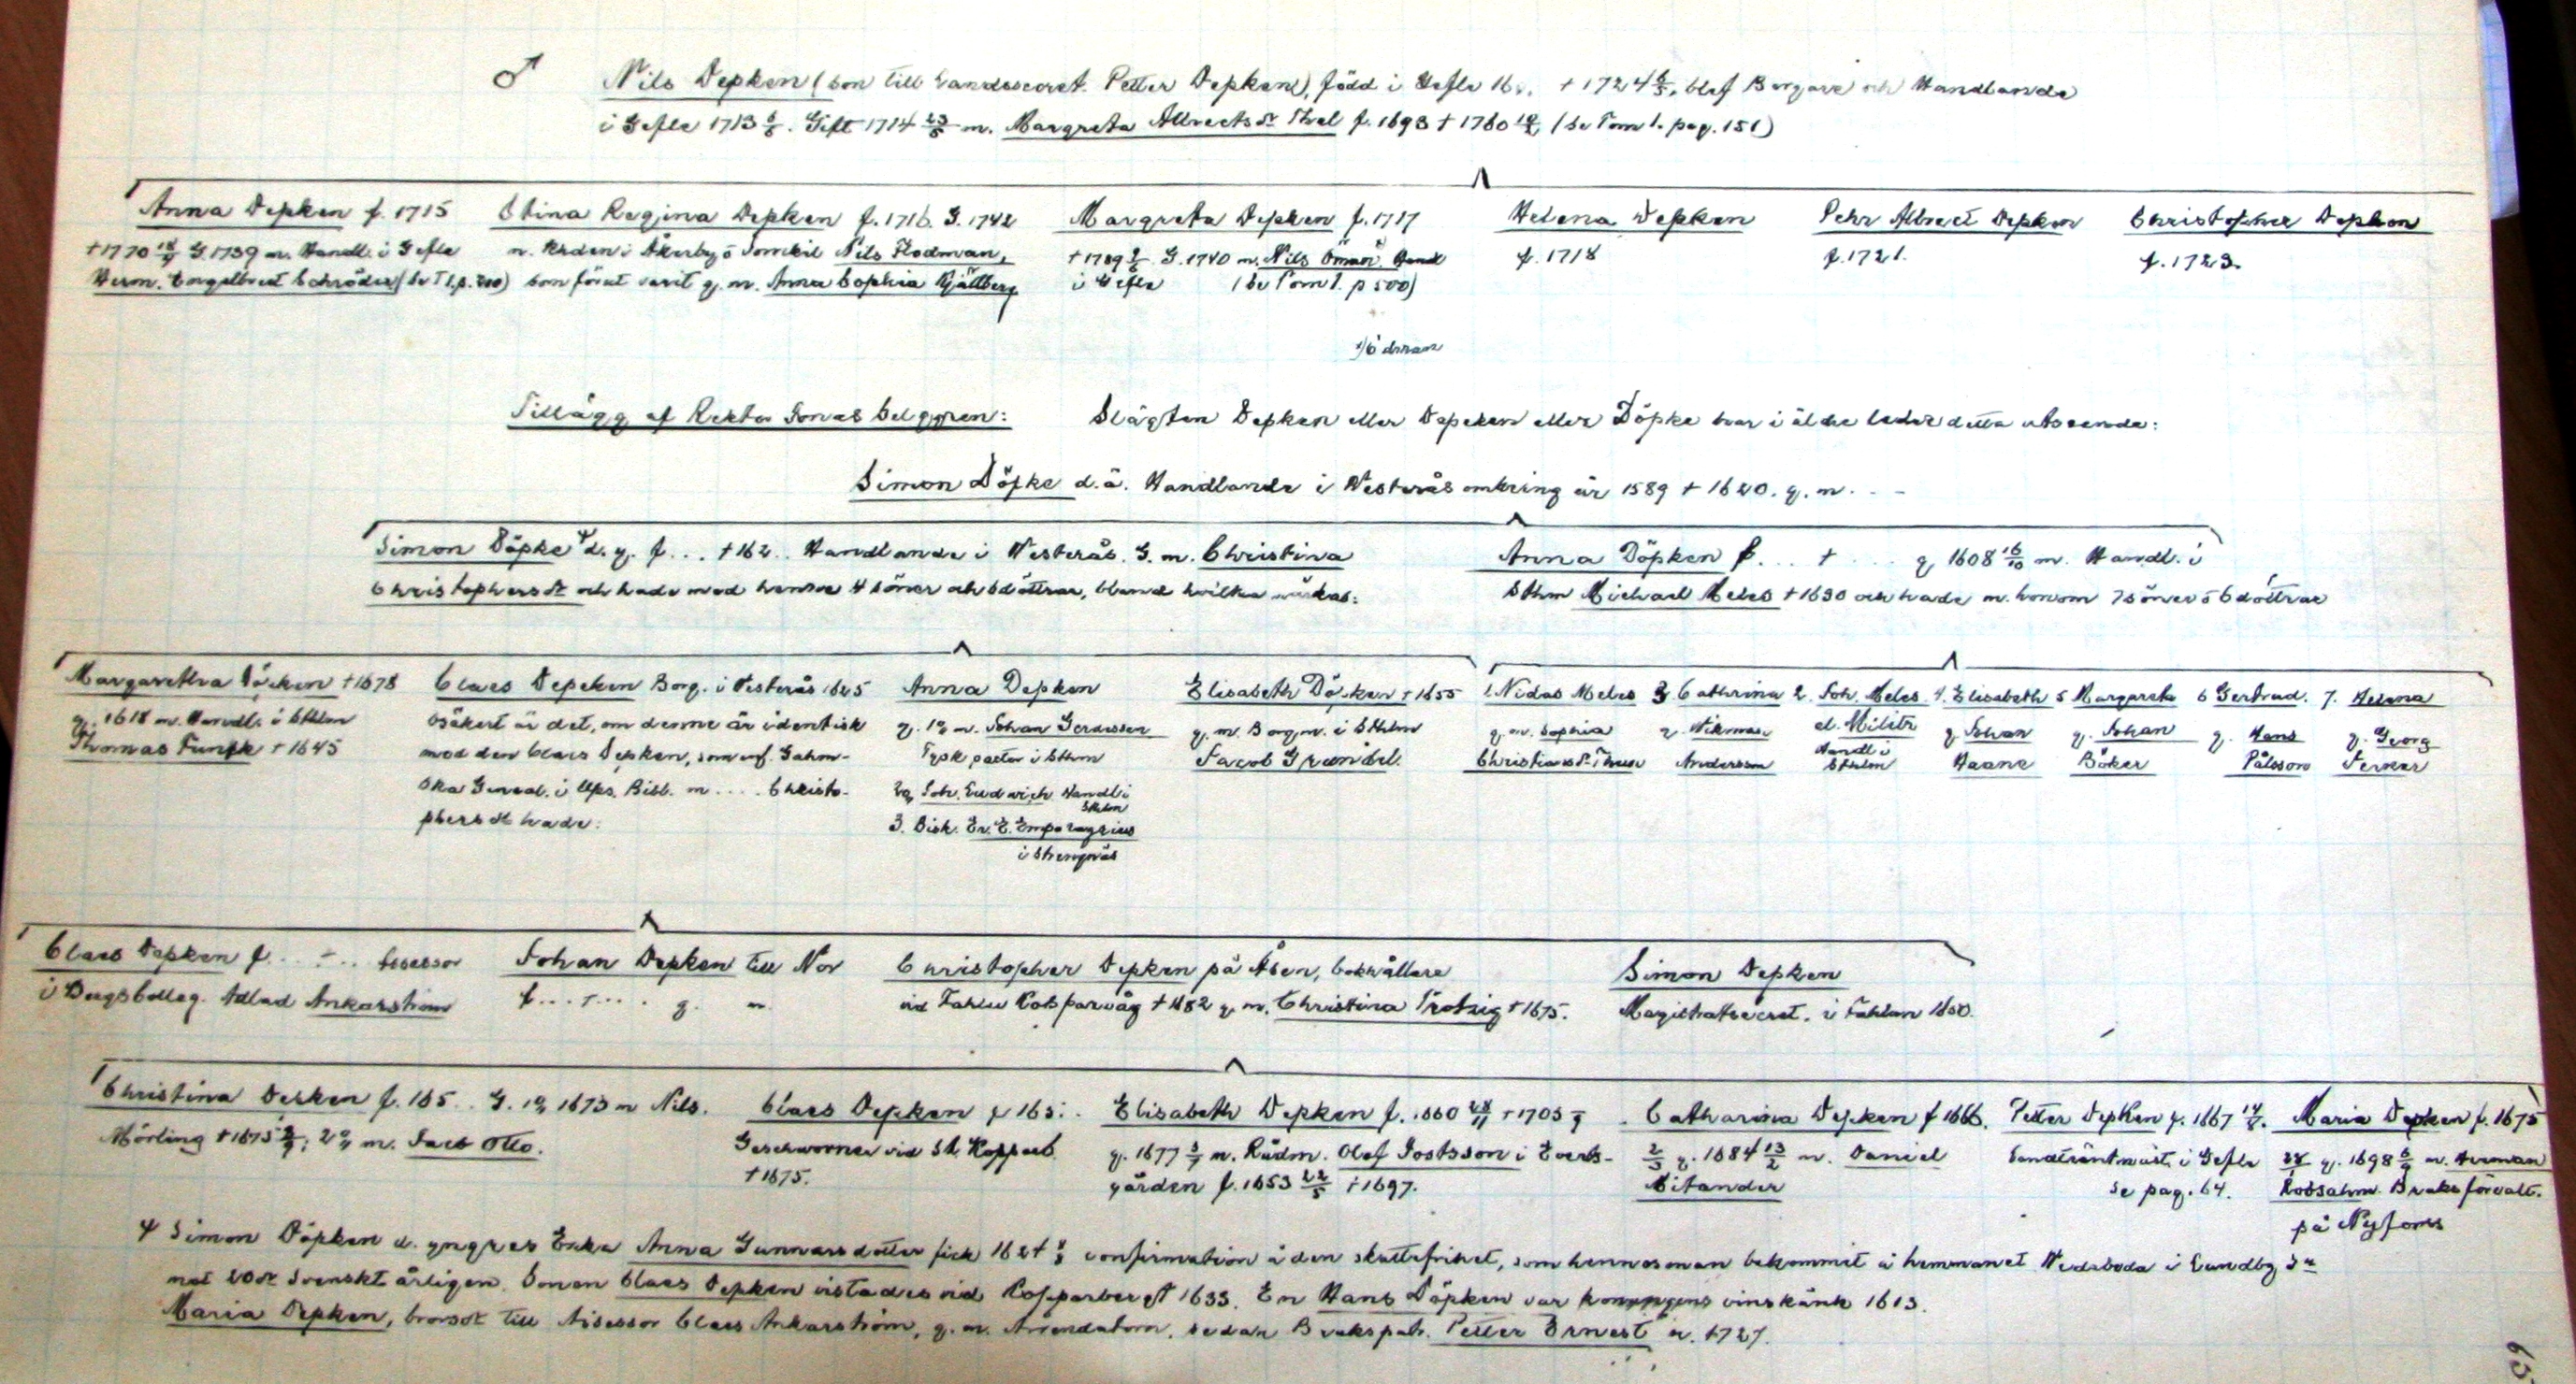 ♂ Nils Depken (son till Landssecret. Petter Depken), född i Gefle 16.. + 1724 6/5, blef Borgare och Handlande
i Gefle 1713. Gift 1714 m. Margreta Albrects dr Thel f. 1693 + 1760 (se Tom 1. pag. 151)
Anna Depken f. 1715
+ 1770 G. 1739 m. Handl. i Gefle
Herm. Engelbrect Schröder (se T 1. p. 200)
Stina Regina Depken f. 1716. G. 1742
m. i Åkerby o Nils Flodman,
som förut varit g. m. Anna Sophia Kjällberg
Margreta Depken f. 1717
+ 1789 G. 1740 m. Nils Öman. Hand
i Gefle (se Tom 1. p 500)
Helena Depken
f. 1718
Pehr Albrect Depken
f. 1721.
Christopher Depken
f. 1723.
Tillägg af Rektor Jonas Selggren: Slägten Depken eller Depeken eller Döpke har i äldre leder detta utseende:
Simon Döpke d.ä. Handlande i Westerås omkring år 1589 + 1620. g. m. . -
Simon Döpke d. y. f... + 162.. Handlande i Westerås. G. m. Christina
Christophersdr och hade med henne 4 söner och 6 döttrar, bland hvilka märkas:
Anna Döpken f... + .... g. 1608 16/10 m. Handl. i
Sthm Michael Meles + 1630 och hade m. honom 7 söner o 6 döttrar
Margaretha Döpken + 1678
g. 1618 m. Handl. i Sthlm
Thomas Funck + 1645
Claes Depeken Borg. i Vesterås 1625
osäkert är det, om denne är identisk
med den Claes Depken, som enf. Gahm-
ska Geneal. i Ups. Bibl. m .... Christo-
phersdr hade:
Anna Depken
g. 1º m. Johan Gerdessen
Tysk pastor i Sthm
2º Joh. Ludwich Handl. i
Sthlm
3. Bisk. Er. E. Emporagrius
i Strengnäs
Elisabeth Döpken + 1655
g. m. Borgm. i Sthlm
Jacob Grundel.
1. Niclas Meles
g. m. Sophia
Christians dr Thun
3. Cathrina
g. Nikmas
Andersson
2. Joh. Meles
el. Militz
Handl i
Sthlm
4. Elisabeth
g. Johan
Haane
5 Margareta
g. Johan
Böker
6 Gertrud.
g. Hans
Pålsson
7. Helena
g. Georg
Ferner
Claes Depken f... + .. Assessor
i Bergscolleg. Adlad Ankarström
Johan Depken till Nor
f... + .... g. m.
Christopher Depken på Åsen, bokhållare
vid Fahlu Kopparvåg + 1682 g. m. Christina Trotzig + 1675.
Simon Depken
Magistratssecret. i Fahlun 1650.
Christina Depken f. 165.. G. 1º 1673 m Nils.
Mörling + 1675; 2º m. Jacob Otto.
Claes Depken f 165..
Geschworner vid St. Kopparb.
+ 1675.
Elisabeth Depken f. 1660 + 1705
g. 1677 m. Rådm. Olof Jostsson i Everts-
gården f. 1653 22/5 + 1697.
Catharina Depken f 1666.
2/3 g. 1684 13/2 m. Daniel
Bitander
Petter Depken f. 1667
Landträntmäst. i Gefle
se pag. 64.
Maria Depken f. 1675
g. 1698 m. Herman
Robsahm. Bruksförvalt.
på Nyfors
Simon Döpken d. yngres Enka Anna Gunnarsdotter fick 1624 confirmation å den skattefrihet, som hennes man bekommit å hemmanet Nedsboda i Lundby Sn
mot 20 dr Svenskt årligen. Sonen Claes Depken vistades vid Kopparberget 1633. En Hans Döpken var konungens vinskänk 1613.
Maria Depken, brorsdr till Assessor Claes Ankarström, g. m. Arrendatorn, sedan Brukspatr. Petter Ernest n. + 727.
65